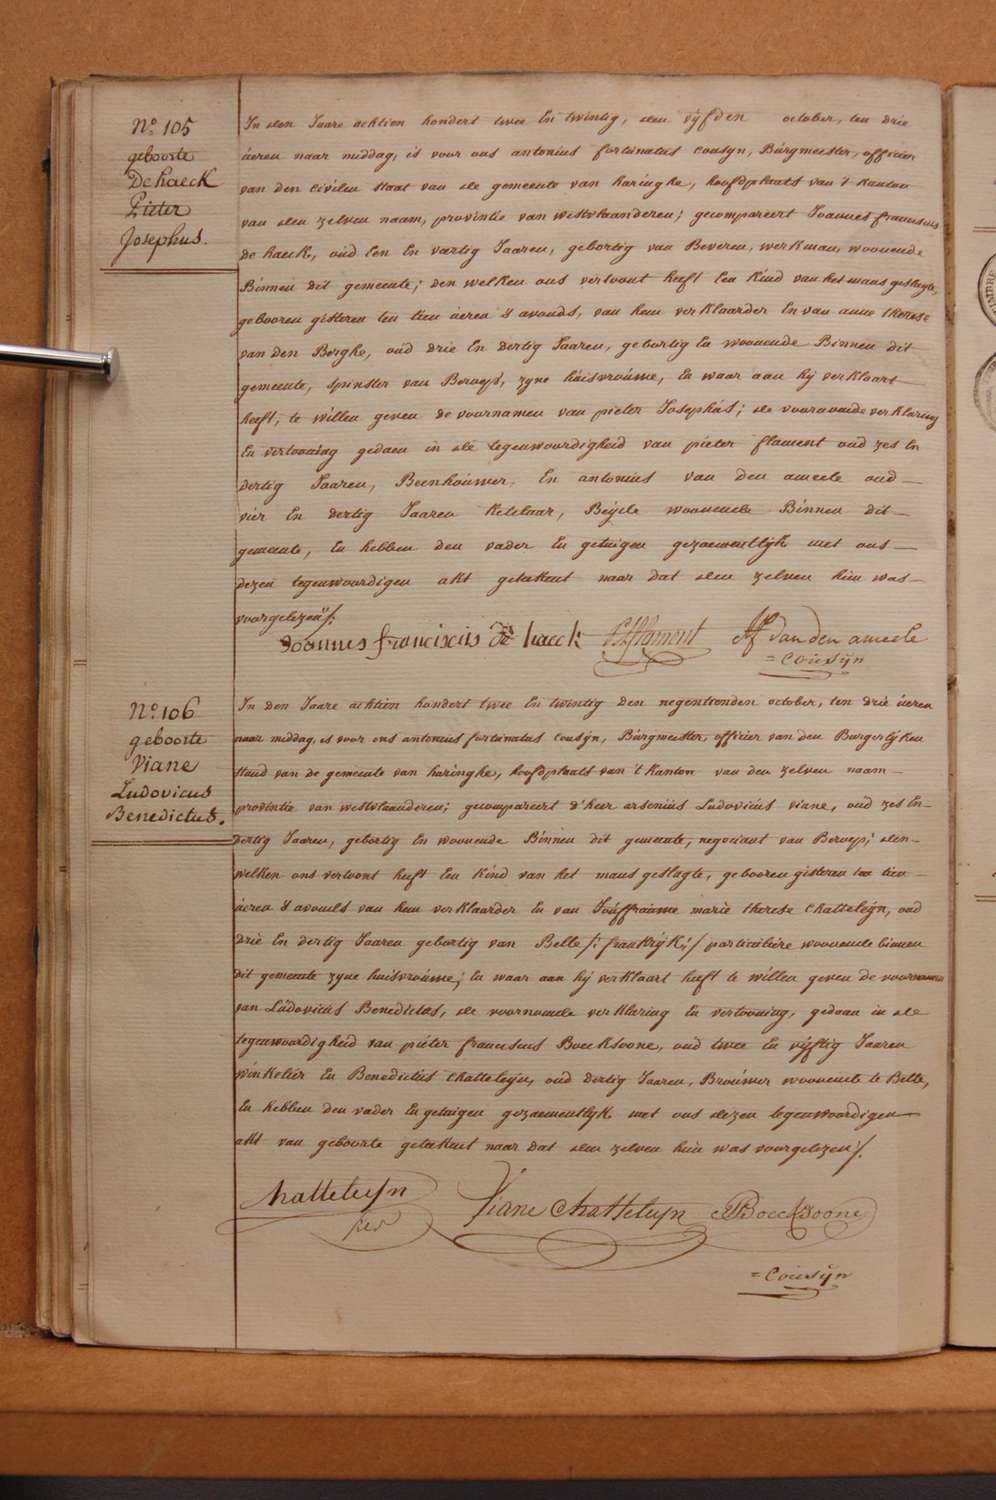 N.° 105
geboorte
De haeck
Pieter
Josephus.
In den Jaare achtien hondert twee En twintig, den vÿfden october, ten drie
ueren naar middag, is voor ons antonius fortunatus Cousyn, Burgmeester, officier
van den civilen staat van de gemeente van haringhe, hoofdplaats van 't kanton
van den zelven naam, provintie van westvlaanderen; gecompareert Joannes franciscus
de haeck, oud Een En vartig Jaaren, gebortig van Beveren, werkman, woonende
Binnen dit gemeente; den welken ons vertoont heeft Een kind van het mans geslagte,
gebooren gisteren ten tien ueren 's avonds, van hem verklaarder En van anne therese
van den Berghe, oud drie En dertig Jaaren, gebortig En woonende Binnen dit
gemeente, spinster van Beroep, zyne huisvrouwe, En waar aan hij verklaart
heeft, te willen geven de voornamen van pieter Josephus; de voornoemde verklaring
En vertooning gedaen in de tegenwoordigheid van pieter flament oud zes En
dertig Jaaren, Beenhouwer, En antonius van den ameele oud
vier En dertig Jaaren ketelaar, Beijde woonende Binnen dit
gemeente, En hebben den vader En getuigen gezaementlijk met ons
dezen tegenwoordigen akt geteekent naar dat den zelven hun was
voorgelezen /.
Joannes franciscus De haeck P. Flament A F van den ameele
= Cousijn
N.° 106
geboorte
Viane
Ludovicus
Benedictus.
In den Jaare achtien hondert twee En twintig den negentienden october, ten drie ueren
naar middag, is voor ons antonius fortunatus Cousyn, Burgmeester, officier van den Burgerlijken
stand van de gemeente van haringhe, hoofdplaats van 't kanton van den zelven naam
provintie van westvlaanderen; gecompareert d'heer arsenius Ludovicus viane, oud zes En-
dertig Jaaren, gebortig En woonende Binnen dit gemeente, negociant van Beroep; den-
welken ons vertoont heeft Een kind van het mans geslagte, gebooren gisteren ten tien
ueren 's avonds van hem verklaarder En van Jouffrauwe marie therese Chatteleyn, oud
drie En dertig Jaaren gebortig van Belle /: frankrijk :/ particuliere woonende binnen
dit gemeente zyne huisvrouwe; En waar aan hij verklaart heeft te willen geven de voornamen
van Ludovicus Benedictus, de voornoemde verklaring En vertooning, gedaan in de
tegenwoordigheid van pieter franciscus Boecksoone, oud twee En vijftig Jaaren
winkelier En Benedictus Chatteleyn, oud dertig Jaaren, Brouwer woonende te Belle,
En hebben den vader En getuigen gezaementlyk met ons dezen tegenwoordigen
akt van geboorte geteekent naar dat den zelven hun was voorgelezen /.
Chatteleyn Viane Chatteleyn P Boecksoone
= Cousijn